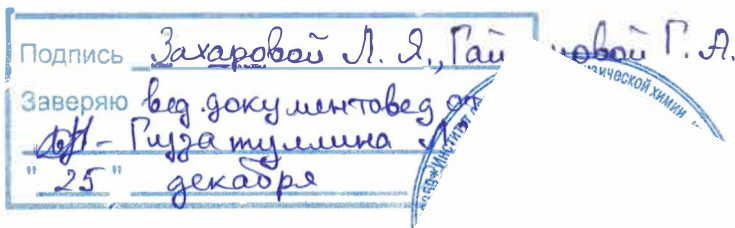 Подпись Захаровой Л. Я., Гай новой Г. А.
Заверяю вед. документовед от
Гизатуллина Л.
"25" декабря
Институт
зической химии